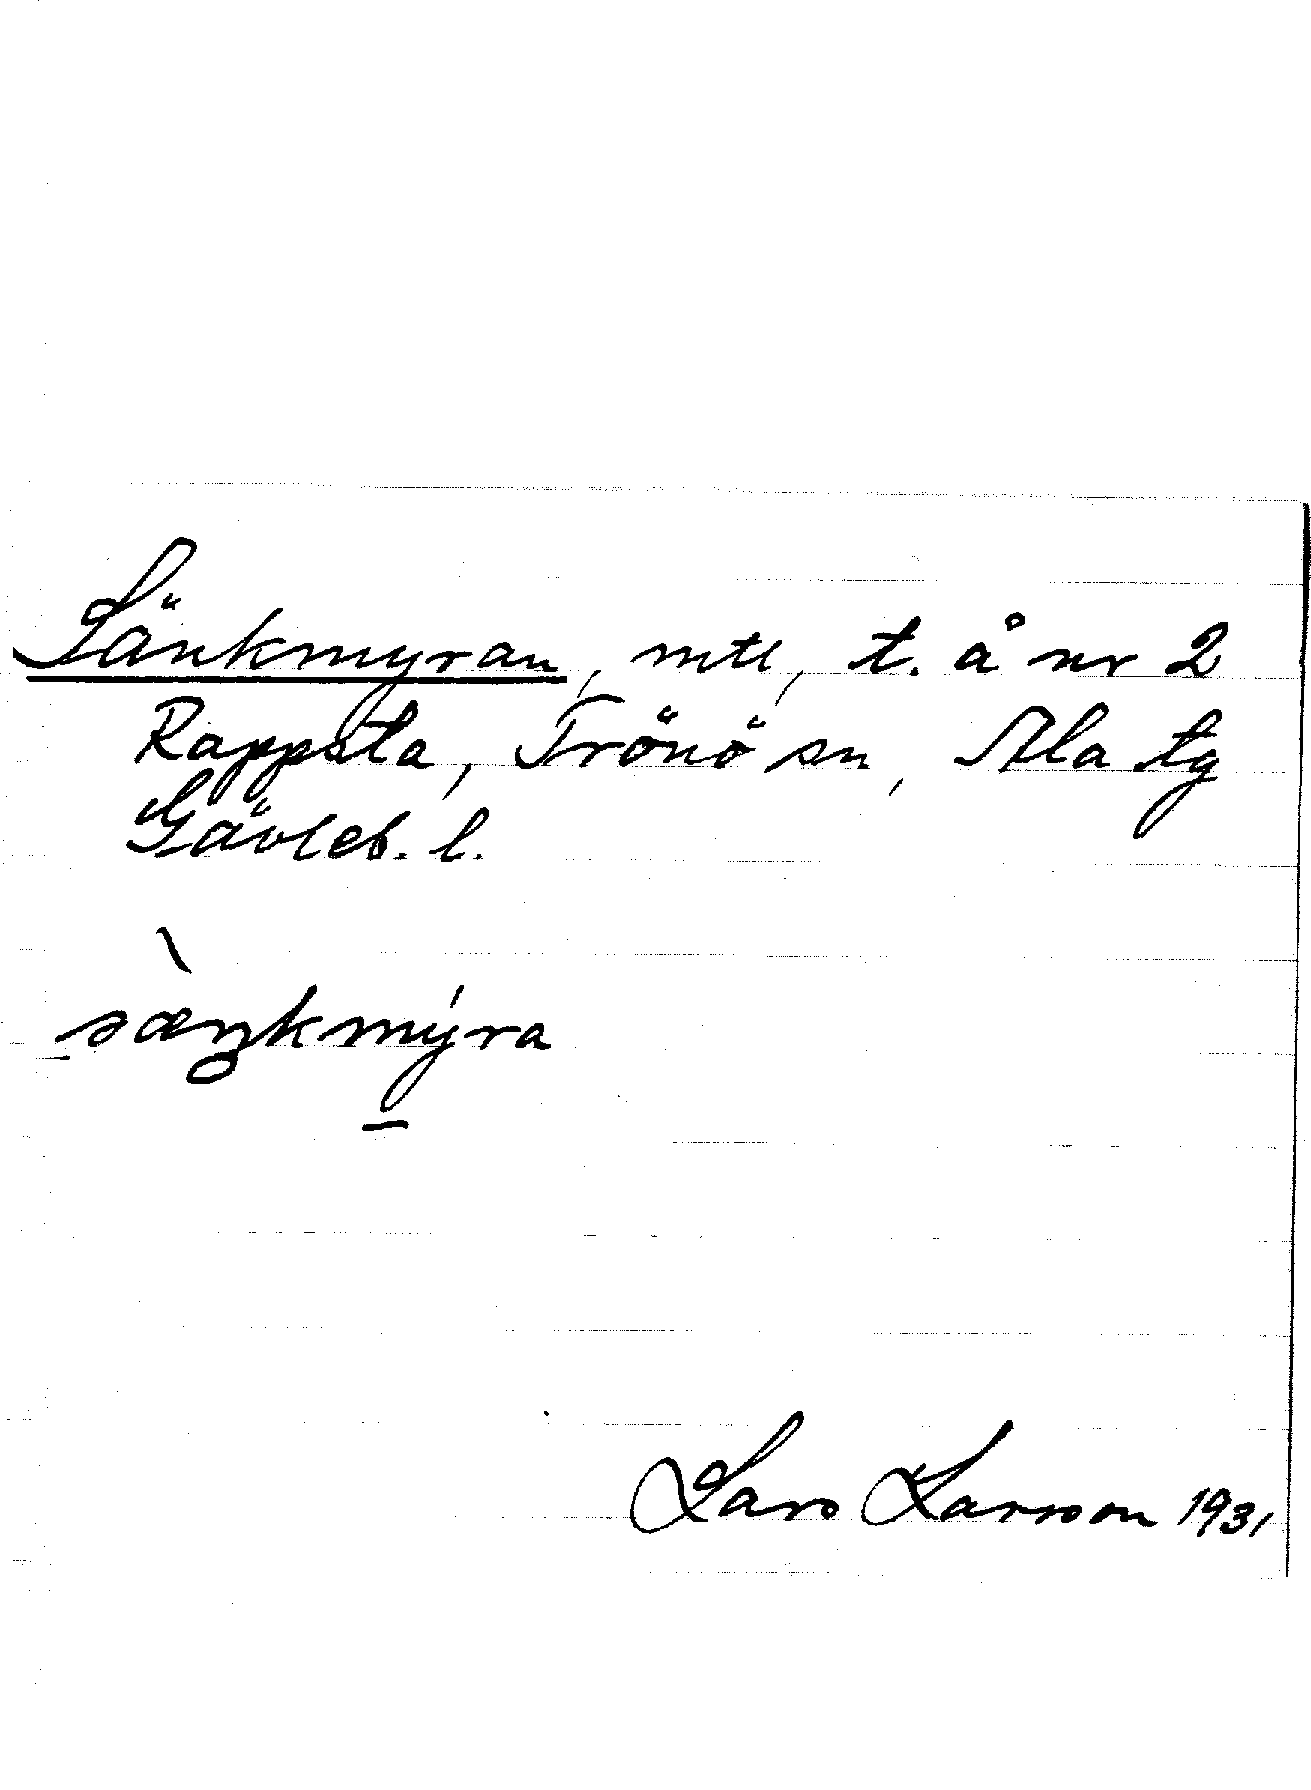 Sänkmyran, mtl, t. å nr 2
Rappsta, Trönö sn, Ala tg
Gävleb. l.
sæ̀ŋkmýra
Lars Larsson 1931